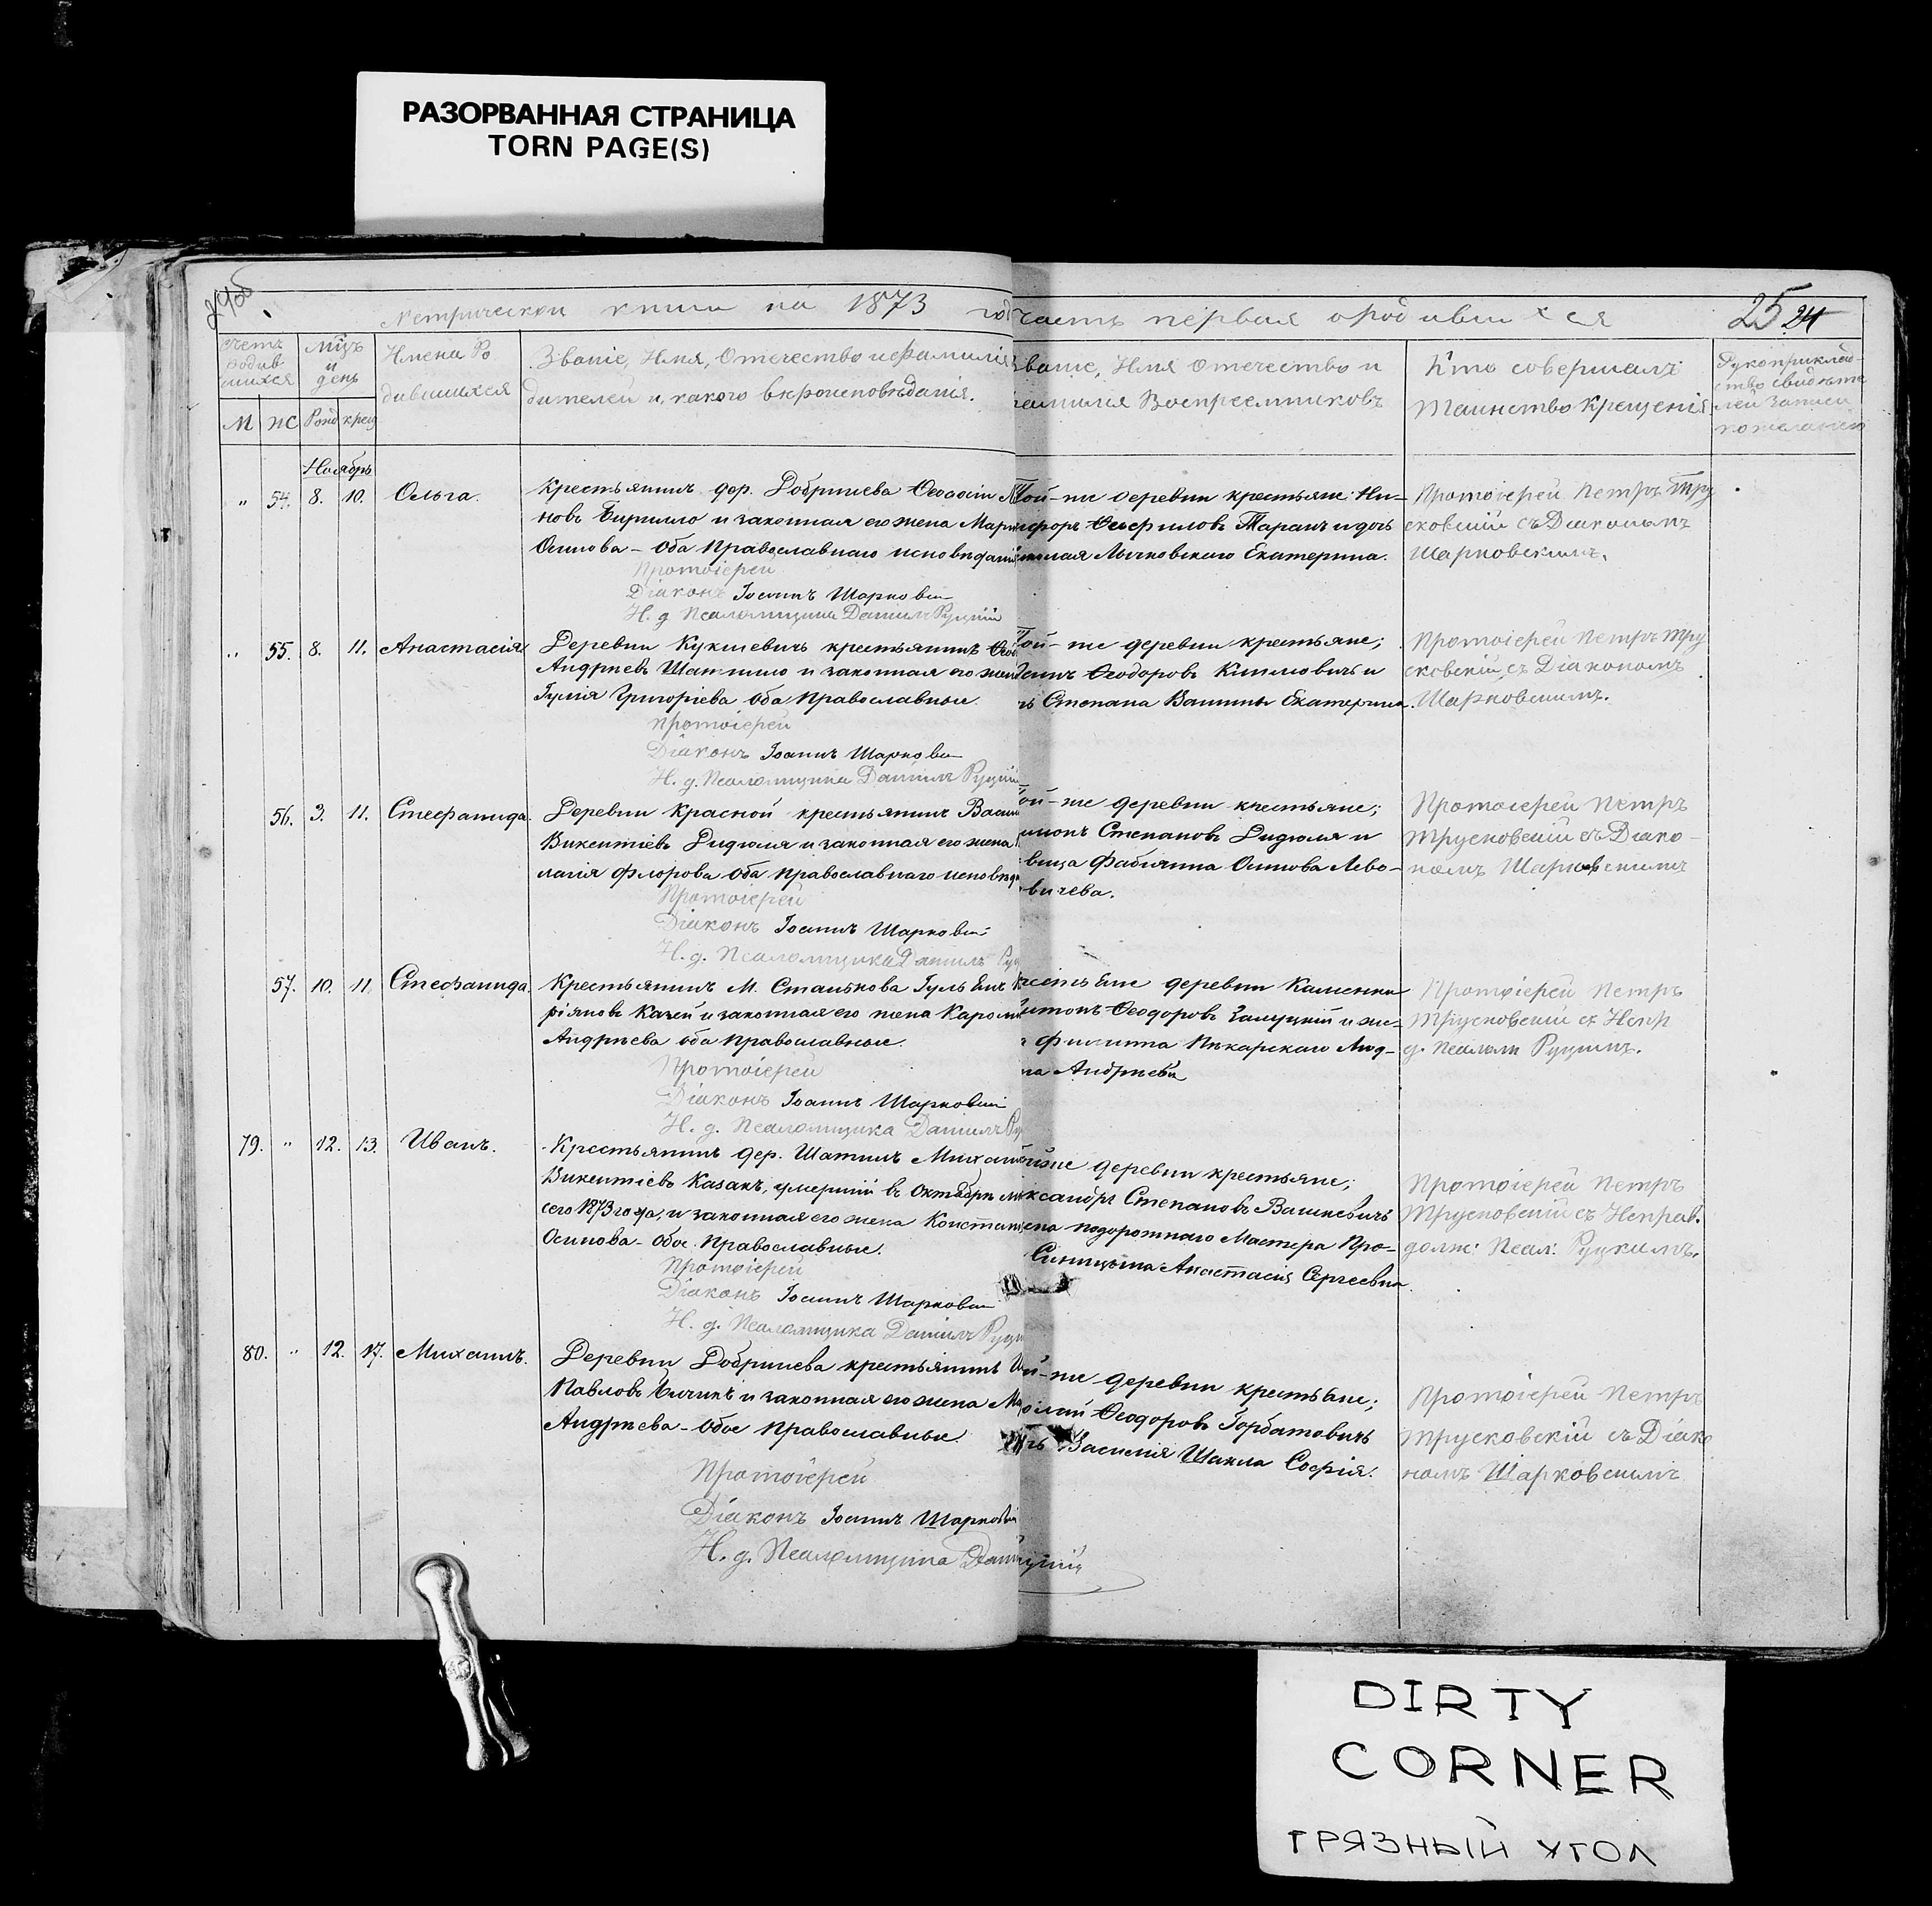 РАЗОРВАННАЯ СТРАНИЦА
TORN PAGE(S)
24об
Метрической книги на 1873 год
часть первая о родившихся
25 24
Счетъ родив-шихся
М
Ж
Мцъ и день
Рожд
крещ
Имена Родившихся
Званіе, Имя, Отечество и Фамилія
дителей и какого вѣроисповѣданія.
Званіе, Имя Отечество и
фамилія Воспреемниковъ
Кто совершалъ
Таинство Крещенія
Рукоприклад-
ство свидѣте
лей записи
по желанію
Ноябрь
" 54. 8. 10. Ольга.
Крестьянинъ дер. Добринева Ѳеодосій
новъ Бирилло и законная его жена
Осипова – Оба Православнаго исповѣданія
Протоіерей
Діаконъ Іоаннъ Шарковій
И. д. Псаломщика Даніилъ Руцкій
Той-же деревни крестьяне: Ни-
Таранъ и дочь
Лычковскаго Екатерина.
Протоіерей Петръ Тру
сковскій съ Діакономъ
Шарковскимъ.
" 55. 8. 11. Анастасія
Деревни Кукшевичъ крестьянинъ
Андреевъ и законная его жена
Григоріева оба Православные.
Протоіерей
Діаконъ Іоаннъ Шарковій
И. д. Псаломщика Даніилъ Руцкій
Той-же деревни крестьяне;
Ѳеодоровъ и
Степана Екатерина.
Протоіерей Петръ Тру
сковскій съ Діакономъ
Шарковскимъ.
56. 3. 11. Стефанида.
Деревни Красной крестьянинъ
Викентіевъ Дидюля и законная его жена
лагія Флорова оба православнаго исповѣд
Протоіерей
Діаконъ Іоаннъ Шарковій
И. д. Псаломщика Даніилъ
ой-же деревни крестьяне;
Степановъ Дидюля и
вица Осипова Лево-
вичева.
Протоіерей Петръ
Трусковскій съ Діако-
номъ Шарковскимъ
57. 10. 11. Стефанида.
Крестьянинъ М. Станькова
ріяновъ Казей и законная его жена
Андреева оба православные.
Протоіерей
Діаконъ Іоаннъ Шарковій
И. д. Псаломщика Даніилъ
деревни Каменки
Ѳеодоровъ и же-
Филиппа Пекарскаго
Андреева
Протоіерей Петръ
Трусковскій съ Испр
д. Псалом Руцкимъ.
79. " 12. 13. Иванъ.
Крестьянинъ дер. Михаилъ
Викентіевъ Казакъ, умершій въ Октябрѣ
сего 1873 года, и законная его жена
Осипова – Обое Православные.
Протоіерей
Діаконъ Іоаннъ Шарковій
И. д. Псаломщика Даніилъ
деревни крестьяне;
Степановъ Вашкевичъ
подорожнаго Мастера Про-
Синицына Анастасія Сергеевна.
Протоіерей Петръ
Трусковскій съ Исправ.
долж: Псал: Руцкимъ.
80. " 12. 17. Михаилъ.
Деревни Добринева крестьянинъ
Павловъ и законная его жена
Андреева – Обое православные.
Протоіерей
Діаконъ Іоаннъ Шарковій
И. д. Псаломщика
й-же деревни крестьяне;
Ѳеодоровъ Горбатовичъ
Василія Шакла Софія.
Протоіерей Петръ
Трусковскій съ Діако
номъ Шарковскимъ
DIRTY
CORNER
ГРЯЗНЫЙ УГОЛ